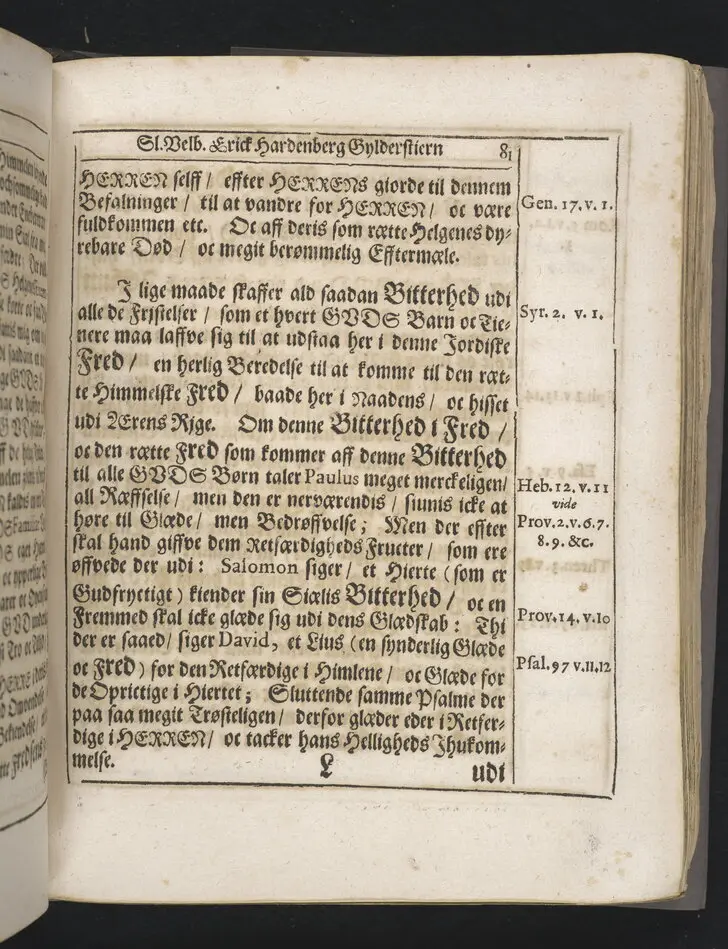 Sl. Velb. Erick Hardenberg Gylderstiern 81
HERREN selff / effter HERRENs giorde til dennem
Befalninger / til at vandre for HERREN / oc være
fuldkommen etc. Oc aff deris som rætte Helgenes dy-
rebare Død / oc megit berømmelig Efftermæle.
Gen. 17. v. 1.
I lige maade skaffer ald saadan Bitterhed udi
alle de Fristelser / som et hvert GUDS Barn oc Tie-
nere maa laffve sig til at udstaa her i denne Jordiske
Fred / en herlig Beredelse til at komme til den ræt-
te Himmelske Fred / baade her i Naadens / oc hisset
udi Ærens Rige. Om denne Bitterhed i Fred /
oc den rætte Fred som kommer aff denne Bitterhed
til alle GVDS Børn taler Paulus meget merckeligen /
all Ræffselse / men den er nerværendis / siunis icke at
høre til Glæde / men Bedrøffvelse; Men der effter
skal hand giffve dem Retfærdigheds Fructer / som ere
øffvede der udi: Salomon siger / et Hierte (som er
Gudfryctigt) kiender sin Siælis Bitterhed / oc en
Fremmed skal icke glæde sig udi dens Glædskab: Thi
der er saaed / siger David, et Lius (en synderlig Glæde
oc Fred) for den Retfærdige i Himlene / oc Glæde for
de Oprictige i Hiertet; Sluttende samme Psalme der
paa saa megit Trøsteligen / derfor glæder eder i Retfer-
dige i HERREN / oc tacker hans Helligheds Ihukom-
melse.
L udi
Syr. 2. v. 1.
Heb. 12. v. 11
vide
Prov. 2. v. 6. 7.
8. 9. &c.
Prov. 14. v. 10
Psal. 97 v. 11. 12